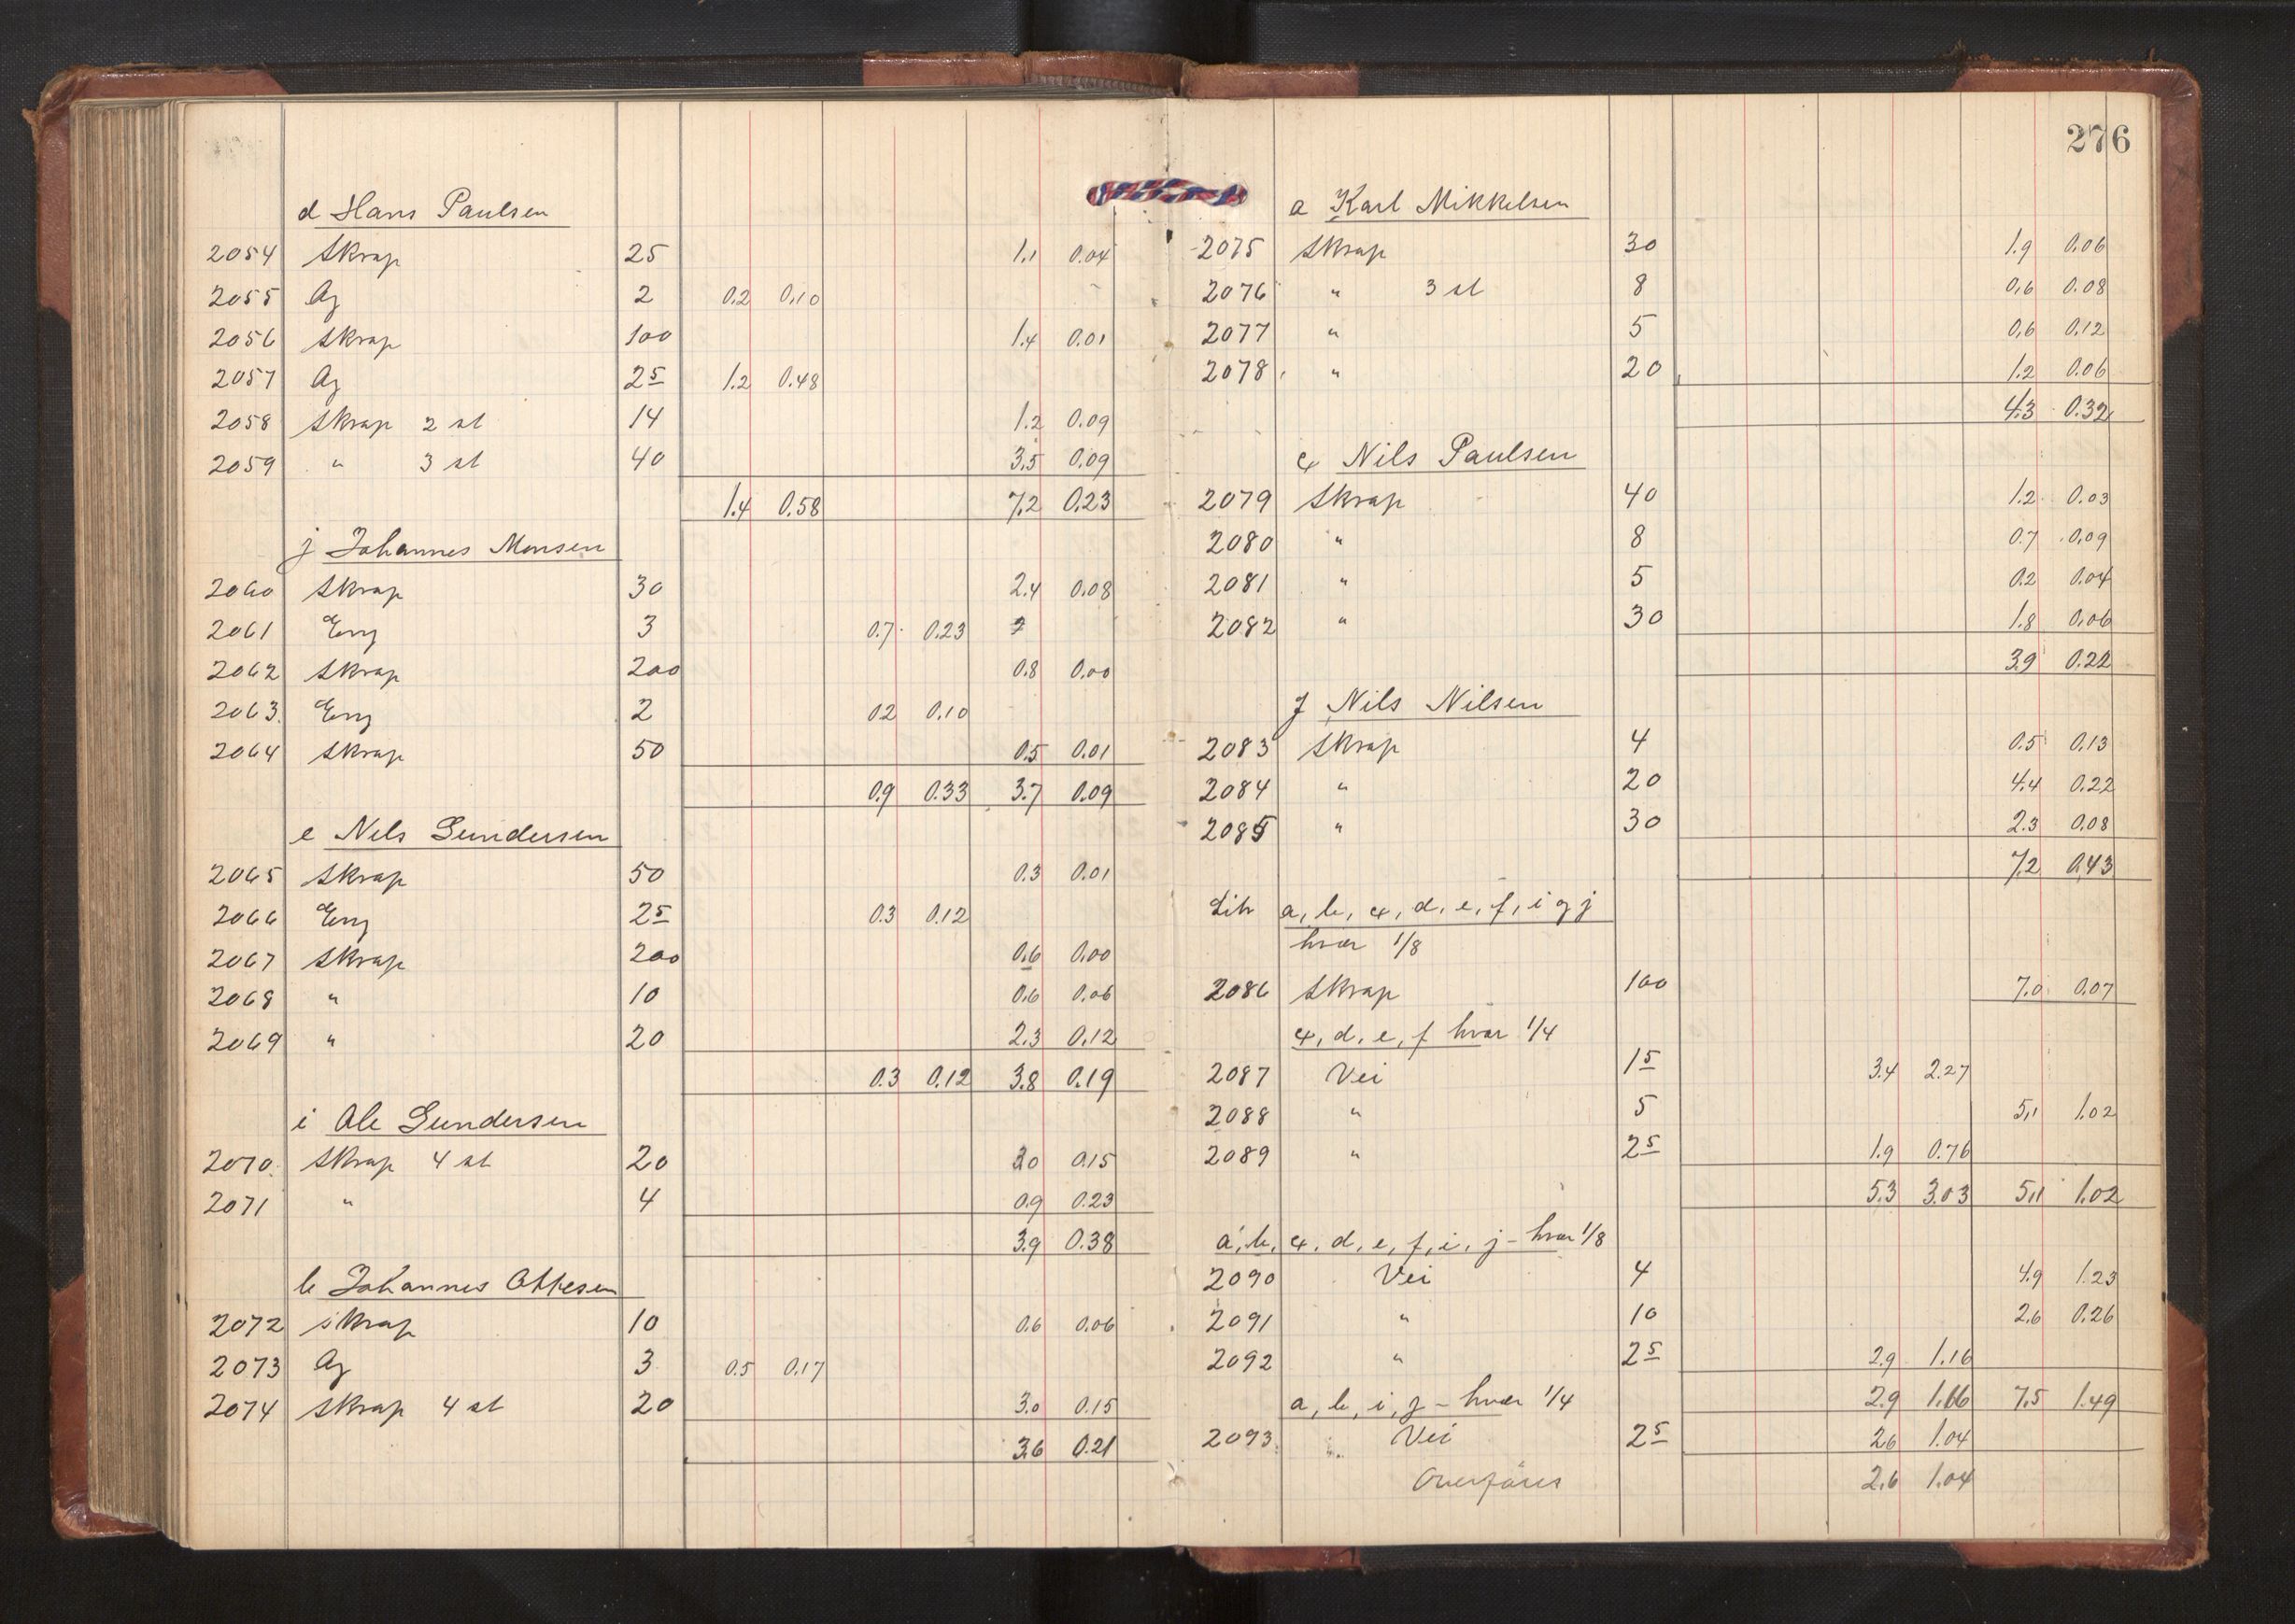 d Hans Paulsen
2054 Skrap 25 1.1 0.04
2055 Ag 2 0.2 0.10
2056 Skrap 100 1.4 0.01
2057 Ag 25 1.2 0.48
2058 Skrap 2 st 14 1.2 0.09
2059 " 3 st 40 3.5 0.09
1.4 0.58 7.2 0.23
j Johannes Monsen
2060 Skrap 30 2.4 0.08
2061 Eng 3 0.7 0.23
2062 Skrap 200 0.8 0.00
2063 Eng 2 02 0.10
2064 Skrap 50 0.5 0.01
0.9 0.33 3.7 0.09
e Nels Gundersen
2065 Skrap 50 0.3 0.01
2066 Eng 25 0.3 0.12
2067 Skrap 200 0.6 0.00
2068 " 10 0.6 0.06
2069 " 20 2.3 0.12
0.3 0.12 3.8 0.19
i Ole Gundersen
2070 Skrap 4 st 20 30 0.15
2071 " 4 0.9 0.23
3.9 0.38
b Johannes Ottesen
2072 Skrap 10 0.6 0.06
2073 Ag 3 0.5 0.17
2074 Skrap 4 st 20 3.0 0.15
3.6 0.21
276
a Karl Mikkelsen
2075 Skrap 30 1.9 0.06
2076 " 3 st 8 0.6 0.08
2077 " 5 0.6 0.12
2078 " 20 1.2 0.06
4.3 0.32
c Nils Paulsen
2079 Skrap 40 1.2 0.03
2080 " 8 0.7 0.09
2081 " 5 0.2 0.04
2082 " 30 1.8 0.06
3.9 0.22
f Nils Nilsen
2083 Skrap 4 0.5 0.13
2084 " 20 4.4 0.22
2085 " 30 2.3 0.08
7.2 0.43
Lit a, b, c, d, e, f, i og j
hver 1/8
2086 Skrap 100 7.0 0.07
c, d, e, f hver 1/4
2087 Vei 15 3.4 2.27
2088 " 5 5.1 1.02
2089 " 25 1.9 0.76
5.3 3.03 5.1 1.02
a, b, c, d, e, f, i, j - hver 1/8
2090 Vei 4 4.9 1.23
2091 " 10 2.6 0.26
2092 " 25 2.9 1.16
2.9 1.16 7.5 1.49
a, b, i, j - hver 1/4
2093 Vei 25 2.6 1.04
Overføres 2.6 1.04